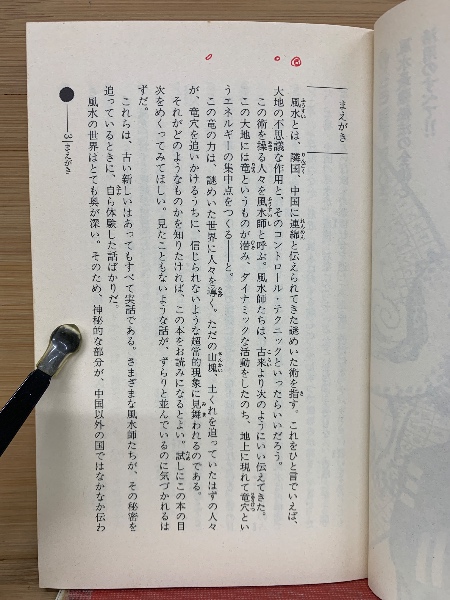 まえがき
風水とは、隣国、中国に連綿と伝えられてきた謎めいた術を指す。これをひと言でいえば、
大地の不思議な作用と、そのコントロール・テクニックといったらいいだろう。
この術を操る人々を風水師と呼ぶ。風水師たちは、古来より次のようにいい伝えてきた。
この大地には竜というものが潜み、ダイナミックな活動をしたのち、地上に現れて竜穴とい
うエネルギーの集中点をつくる——と。
この竜の力は、謎めいた世界に人々を導く。ただの山塊、土くれを追っていたはずの人々
が、竜穴を追いかけるうちに、信じられないような超常的現象に見舞われるのである。
それがどのようなものかを知りたければ、この本をお読みになるとよい。試しにこの本の目
次をめくってみてほしい。見たこともないような話が、ずらりと並んでいるのに気づかれるは
ずだ。
これらは、古い新しいはあってもすべて実話である。さまざまな風水師たちが、その秘密を
追っているときに、自ら体験した話ばかりだ。
風水の世界はとても奥が深い。そのため、神秘的な部分が、中国以外の国ではなかなか伝わ
3 まえがき